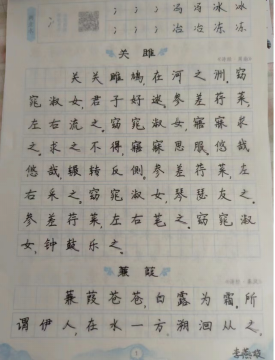 冫 冫 冫 冯 冯 冰 冰
冫 冫 冫 冶 冶 冻 冻
关 雎
关关雎鸠,在河之洲。窈
窕淑女,君子好逑。参差荇菜,
左右流之。窈窕淑女,寤寐求
之。求之不得,寤寐思服。悠哉
悠哉,辗转反侧。参差荇菜,左
右采之。窈窕淑女,琴瑟友之。
参差荇菜,左右芼之。窈窕淑
女,钟鼓乐之。
蒹 葭
蒹葭苍苍,白露为霜。所
谓伊人,在水一方。溯洄从之,
1